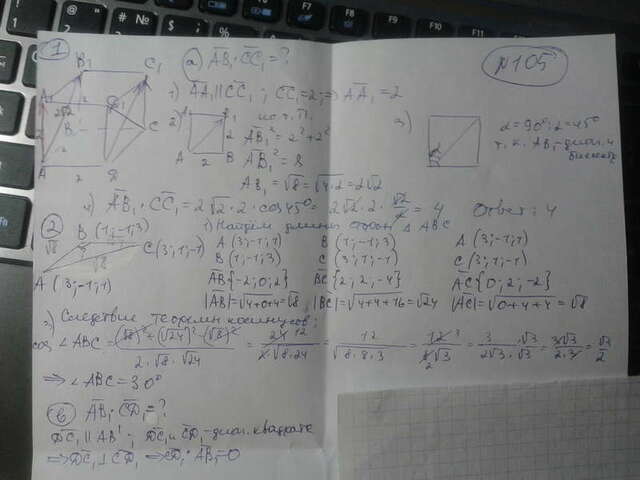 1
а) AB₁·CC₁=?
№105
1) AA₁ || CC₁; CC₁=2; ⇒ AA₁=2
2) по т.П.
AB₁²=2²+2²
AB₁²=8
AB₁=√8=√4·2=2√2
3) α=90°:2=45°
т.к. AB₁-диаг. и
биссект.
4) AB₁·CC₁=2√2·2·cos45°=2√2·2·√2/2=4 Ответ: 4
2 B(1;-1;3) 1) Найдём длины сторон △ABC
C(3;1;-1)
A(3;-1;1)
√8
√8
A(3;-1;1) B(1;-1;3) A(3;-1;1)
B(1;-1;3) C(3;1;-1) C(3;1;-1)
AB{-2;0;2} BC{2;2;-4} AC{0;2;-2}
|AB|=√4+0+4=√8 |BC|=√4+4+16=√24 |AC|=√0+4+4=√8
2) Следствие теоремы косинусов:
cos∠ABC=(√8)²+(√24)²-(√8)²/2·√8·√24=24/2·√8·24=12/√8·8·3=12/8√3=3/2√3·√3=3√3/2·3=√3/2
⇒∠ABC=30°
в) AB₁·CD₁=?
DC₁ || AB₁; DC₁ и CD₁-диаг. квадрата
⇒DC₁⊥CD₁ ⇒CD₁·AB₁=0